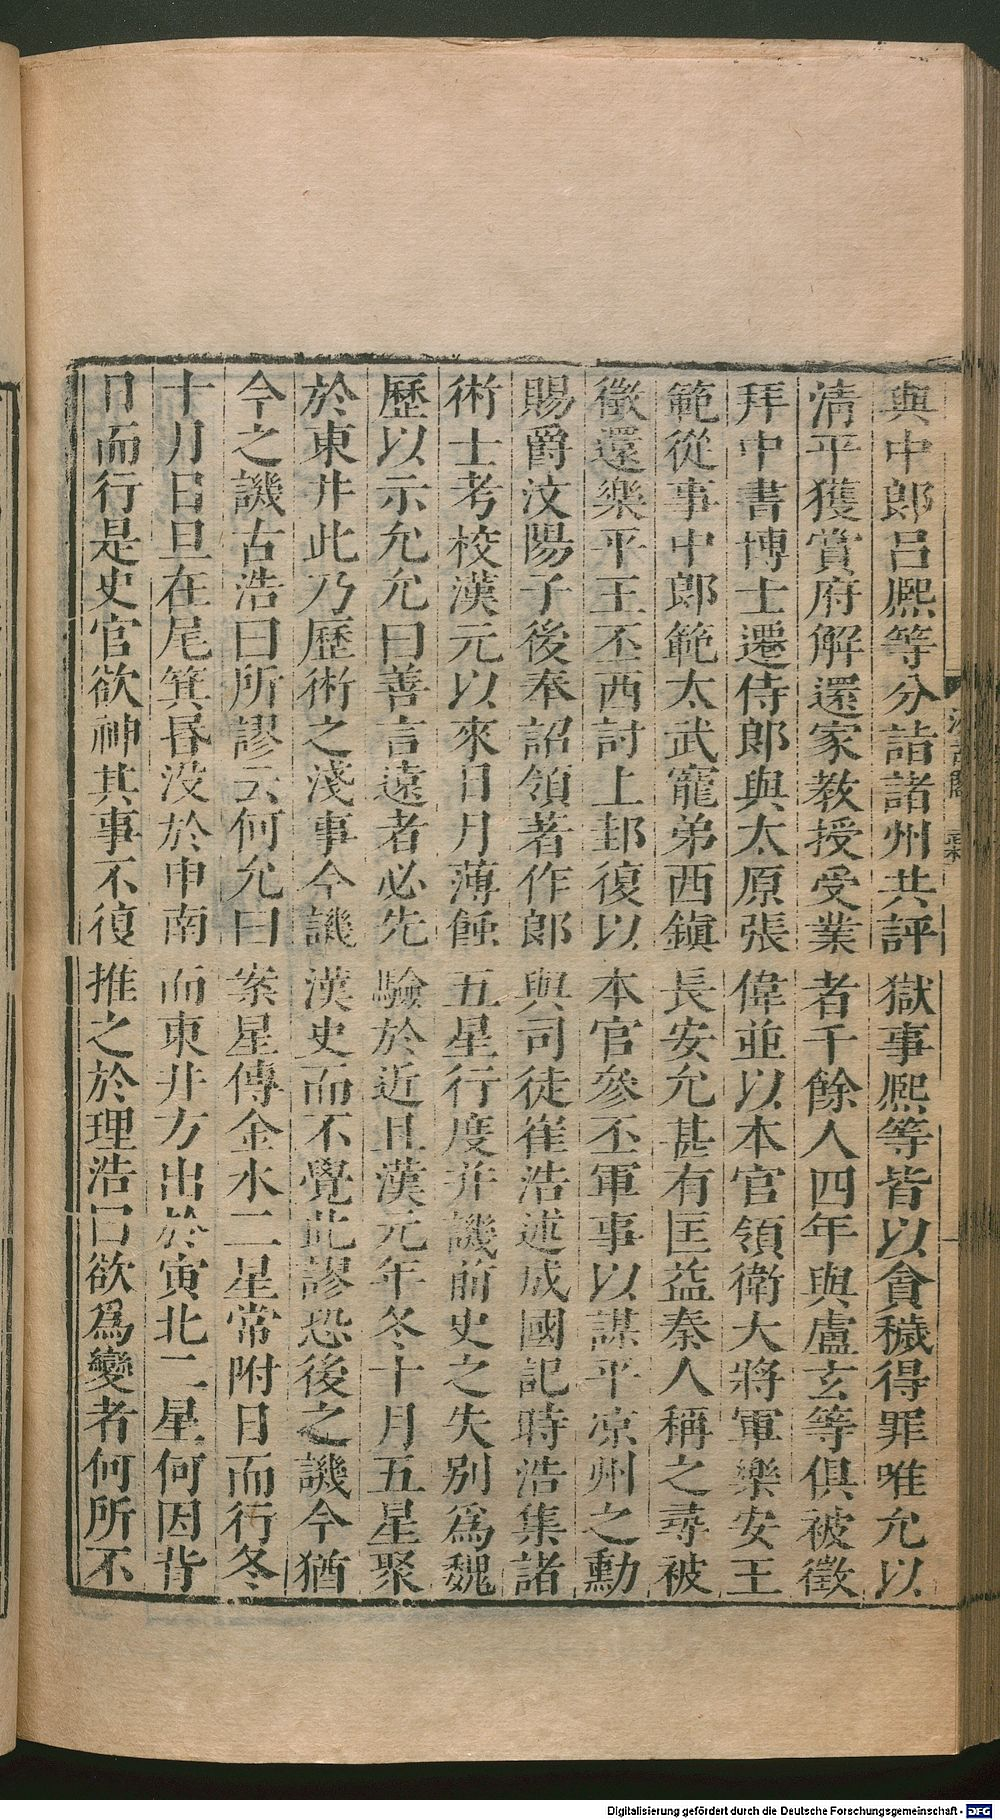 與中郎呂熙等分詣諸州共評獄事熙等皆以貪穢得罪唯允以
清平獲賞府解還家教授受業者千餘人四年與盧玄等俱被徵
拜中書博士遷侍郎與太原張偉並以本官領衛大將軍樂安王
範從事中郎範太武寵弟西鎮長安允甚有匡益秦人稱之尋被
徵還樂平王丕西討上邽復以本官參丕軍事以謀平涼州之勳
賜爵汶陽子後奉詔領著作郎與司徒崔浩述成國記時浩集諸
術士考校漢元以來日月薄蝕五星行度并譏前史之失別為魏
歷以示允允曰善言遠者必先驗於近且漢元年冬十月五星聚
於東井此乃歷術之淺事今譏漢史而不覺此謬恐後之譏今猶
今之譏古浩曰所謬云何允曰案星傳金水二星常附日而行冬
十月日旦在尾箕昏沒於申南而東井方出於寅北二星何因背
日而行是史官欲神其事不復推之於理浩曰欲爲變者何所不
Digitalisierung gefördert durch die Deutsche Forschungsgemeinschaft - DFG